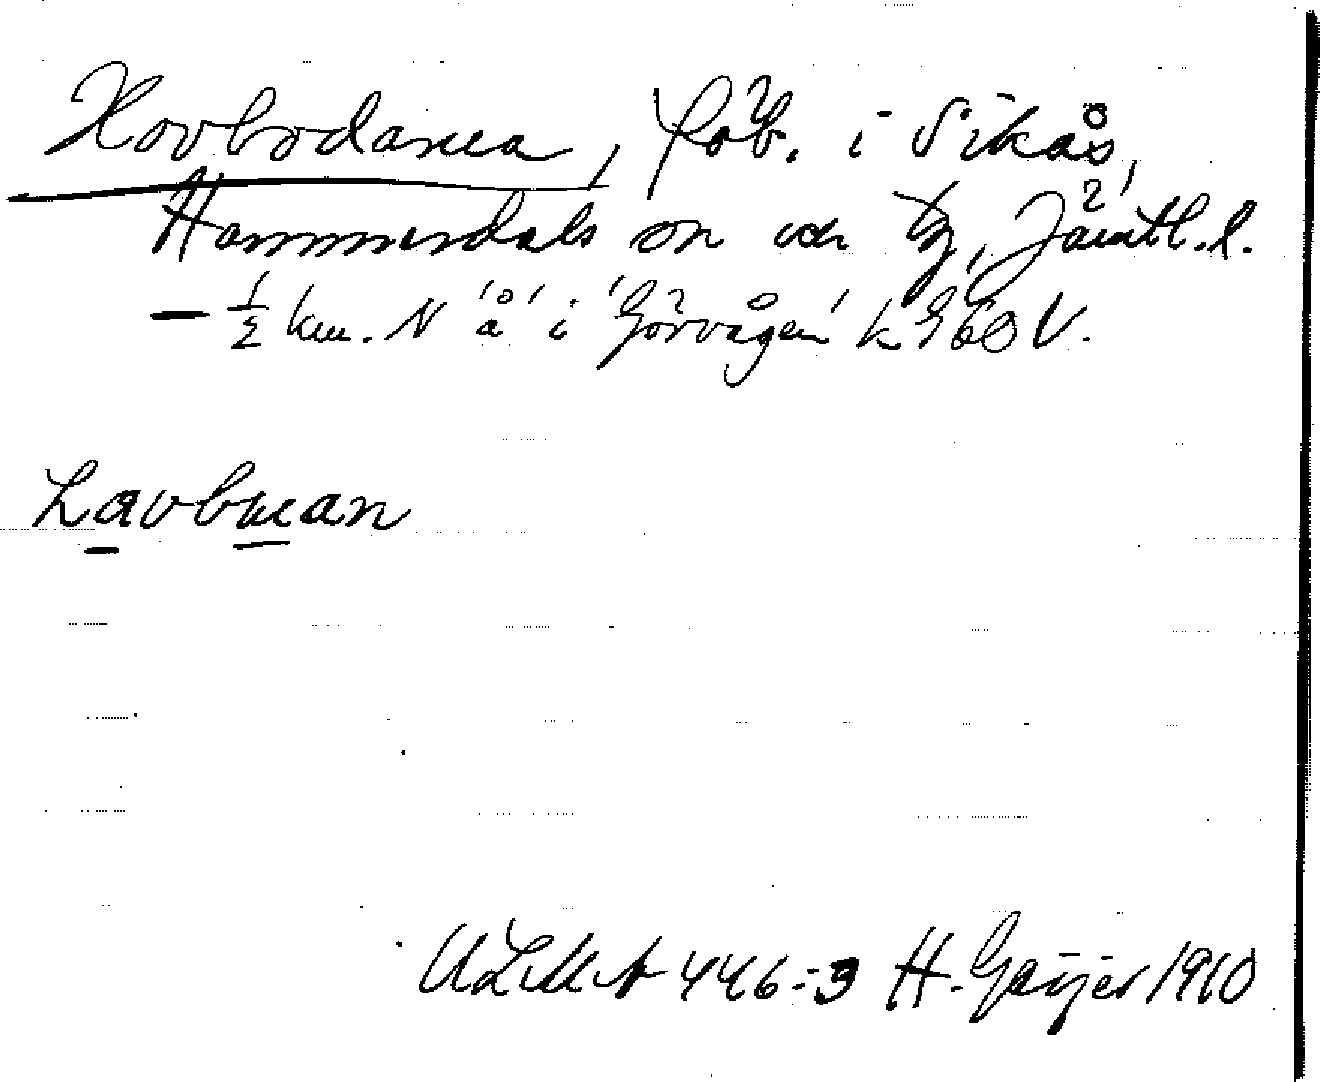 Hovbodarna, föb. i Sikås,
Hammerdals sn och tg, Jämtl. l.
— ½ km. N "å" i "Görvågen" k 960 V.
Lavbuan
ULMA 446:3 H. Geijer 1910